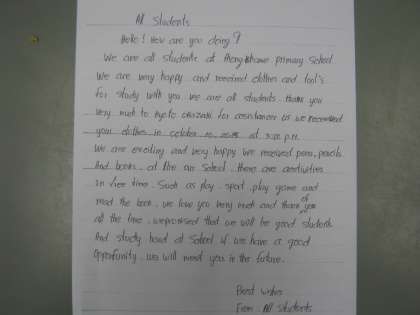 All Students
Hello! How are you doing?
We are all students at primary School
We are very happy and received clothes and tool's
for study with you we are all students thank you
very much to for assistance us we received
your clothes in october at 3:00 p.m.
We are exciting and very happy we received pens, pencils
And books. at the our School there are activities
In free time. Such as play. sport, play game and
read the book. we love you very much and thank of you
all the time. we promised that we will be good students
And study hard at School if we have a good
Opportunity. we will meet you in the future.
Best wishes
From All students